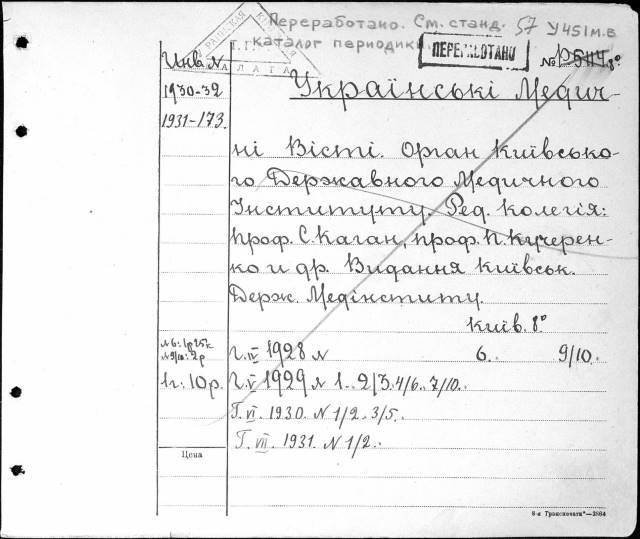 Переработано. См. станд. 57 У451м.в
каталог периодики.
ПЕРЕРАБОТАНО
Инв. N
№ Р5114 8°
1930-32
1931-173.
Українські Медич-
ні Вісті. Орган Київсько-
го Державного Медичного
Інституту. Ред. колегія:
проф. С. Каган, проф. П. Кучерен-
ко и др. Видання Київськ.
Держ. Медінституту.
Київ. 8°
N6: 1р25к
N9/10: 2р
г. IV 1928 N 6. 9/10.
1г: 10р.
Г. V 1929 N 1. 2/3. 4/6. 7/10.
Г. VI. 1930. N 1/2. 3/5.
Г. VII. 1931. N 1/2.
Цена
8-я „Транспечати"—2864